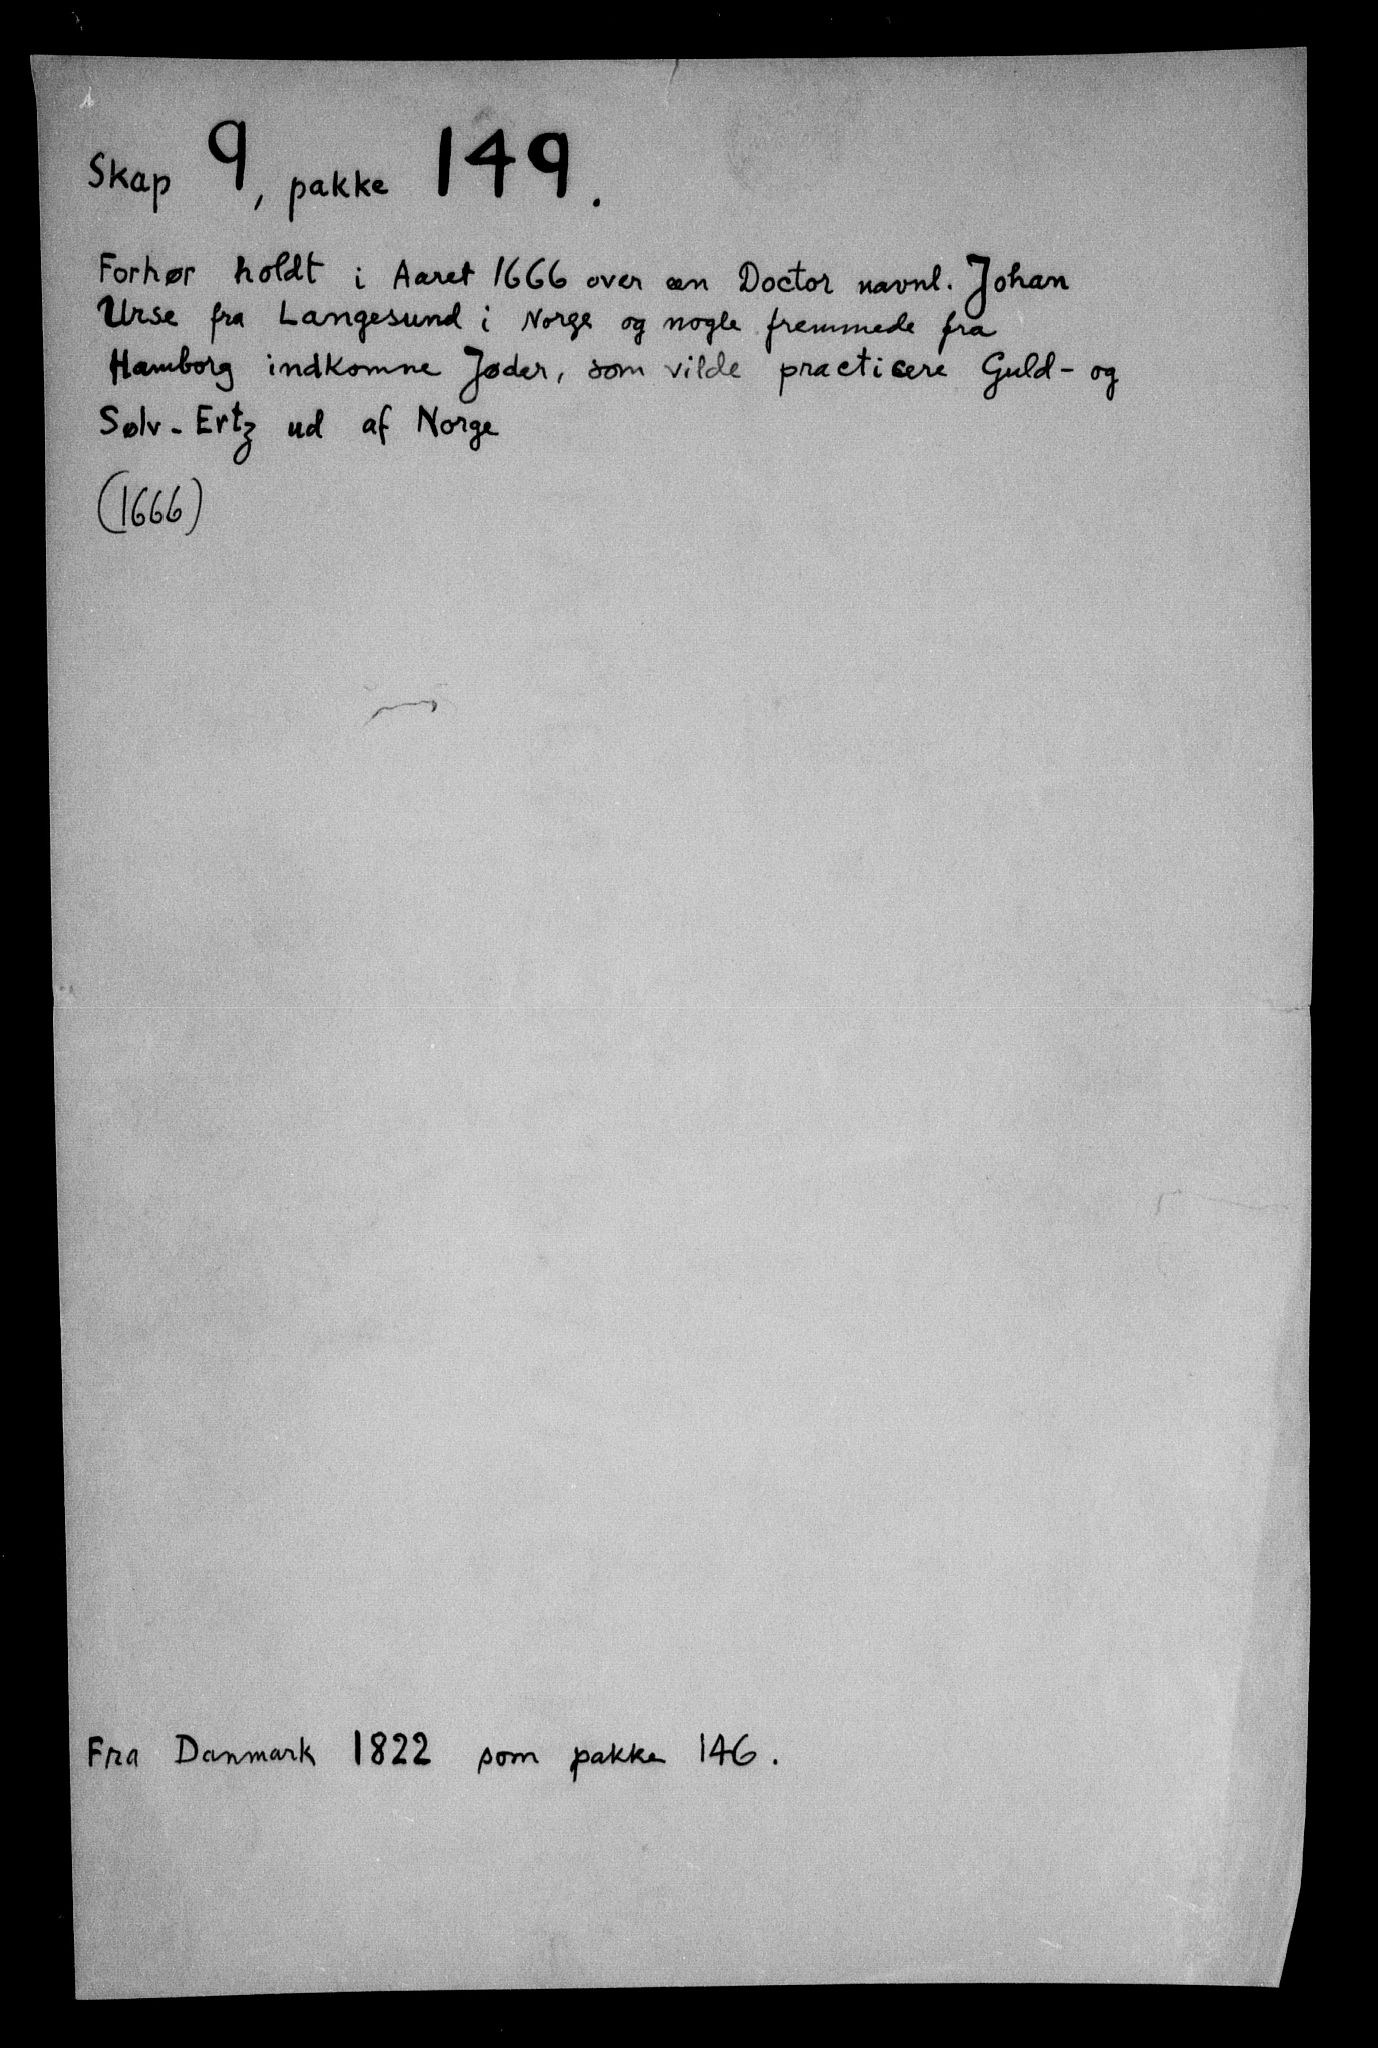 Skap 9, pakke 149.
Forhør holdt i Aaret 1666 over een Doctor navnl. Johan
Urse fra Langesund i Norge og nogle fremmede fra
Hamborg indkomne Jøder, som vilde practicere Guld- og
Sølv-Ertz ud af Norge
(1666)
Fra Danmark 1822 som pakke 146.